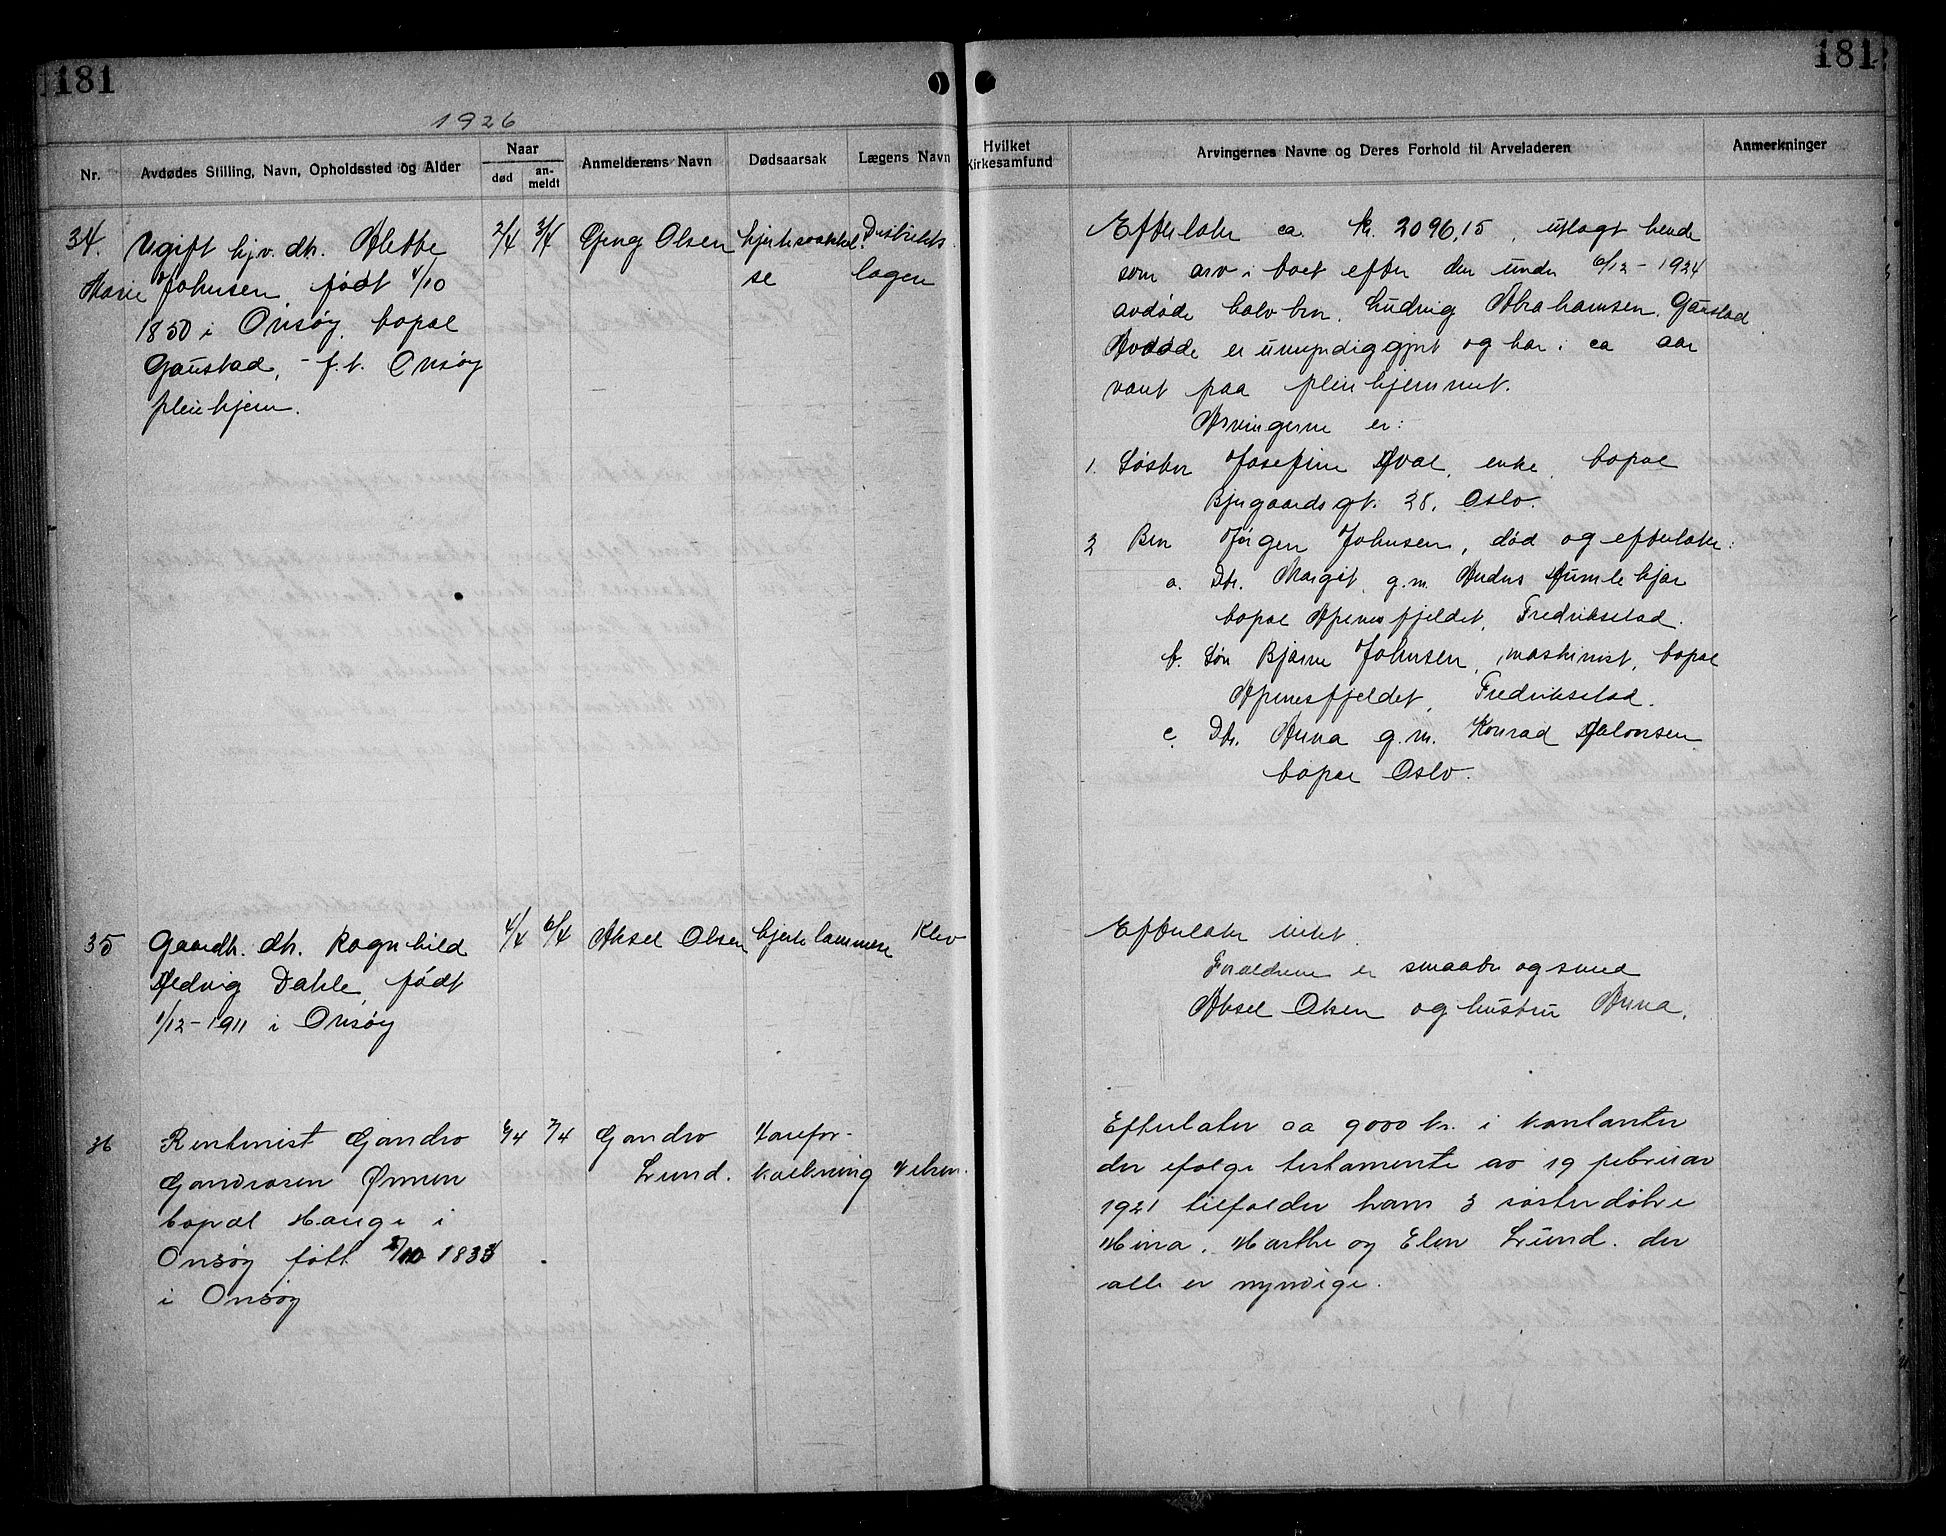 181
181
1926
Nr.
Avdødes Stilling, Navn, Opholdssted og Alder
Naar
død
an-
meldt
Anmelderens Navn
Dødsaarsak
Lægens Navn
Hvilket
Kirkesamfund
Arvingernes Navne og Deres Forhold til Arveladeren
Anmerkninger
34.
Ugift hjv. dtr. Alette
Marie Johnsen, født 4/10
1850 i Onsøy, bopæl
Gaustad, - f.t. Onsøy
pleiehjem.
2/4
3/4
Georg Olsen
hjertesvækkel-
se
Distrikts-
lægen
Efterlater ca. kr. 2096,15, utlagt hende
som arv i boet efter den under 6/12-1924
avdøde halv bror, Ludvig Abrahamsen, Gaustad.
Avdøde er umyndiggjort og har i ca aar
været paa pleiehjemmet.
Arvingerne er:
1. Søster Josefine Hval, enke, bopæl
Bjergaardsgt. 28, Oslo.
2 Bror Jørgen Johnsen, død og efterlater:
a. Dtr. Margit, g.m. Anders Humlekjær
bopæl Apenesfjeldet, Fredrikstad.
b. Søn Bjarne Johnsen, maskinist, bopæl
Apenesfjeldet, Fredrikstad.
c. Dtr. Anna g.m. Konrad Halvorsen
bopæl Oslo.
35
Gaardb. dtr. Ragnhild
Hedvig Dahle, født
1/12-1911 i Onsøy
4/4
6/4
Aksel Olsen
hjertelammelse
Klev
Efterlater intet.
Forældrene er smaabr. og smed
Aksel Olsen og hustru Anna.
36
Rentenist Gandro
Gandrosen Ørmen
bopæl Hauge i
Onsøy født 5/10 1833
i Onsøy
6/4
7/4
Gandro
Lund.
Aarefor-
kalkning
Nilsen.
Efterlater ca 9000 kr. i kontanter
der ifølge testamente av 19 februar
1921 tilfalder hans 3 søsterdøtre
Mina, Marthe og Elen Lund. der
alle er myndige.